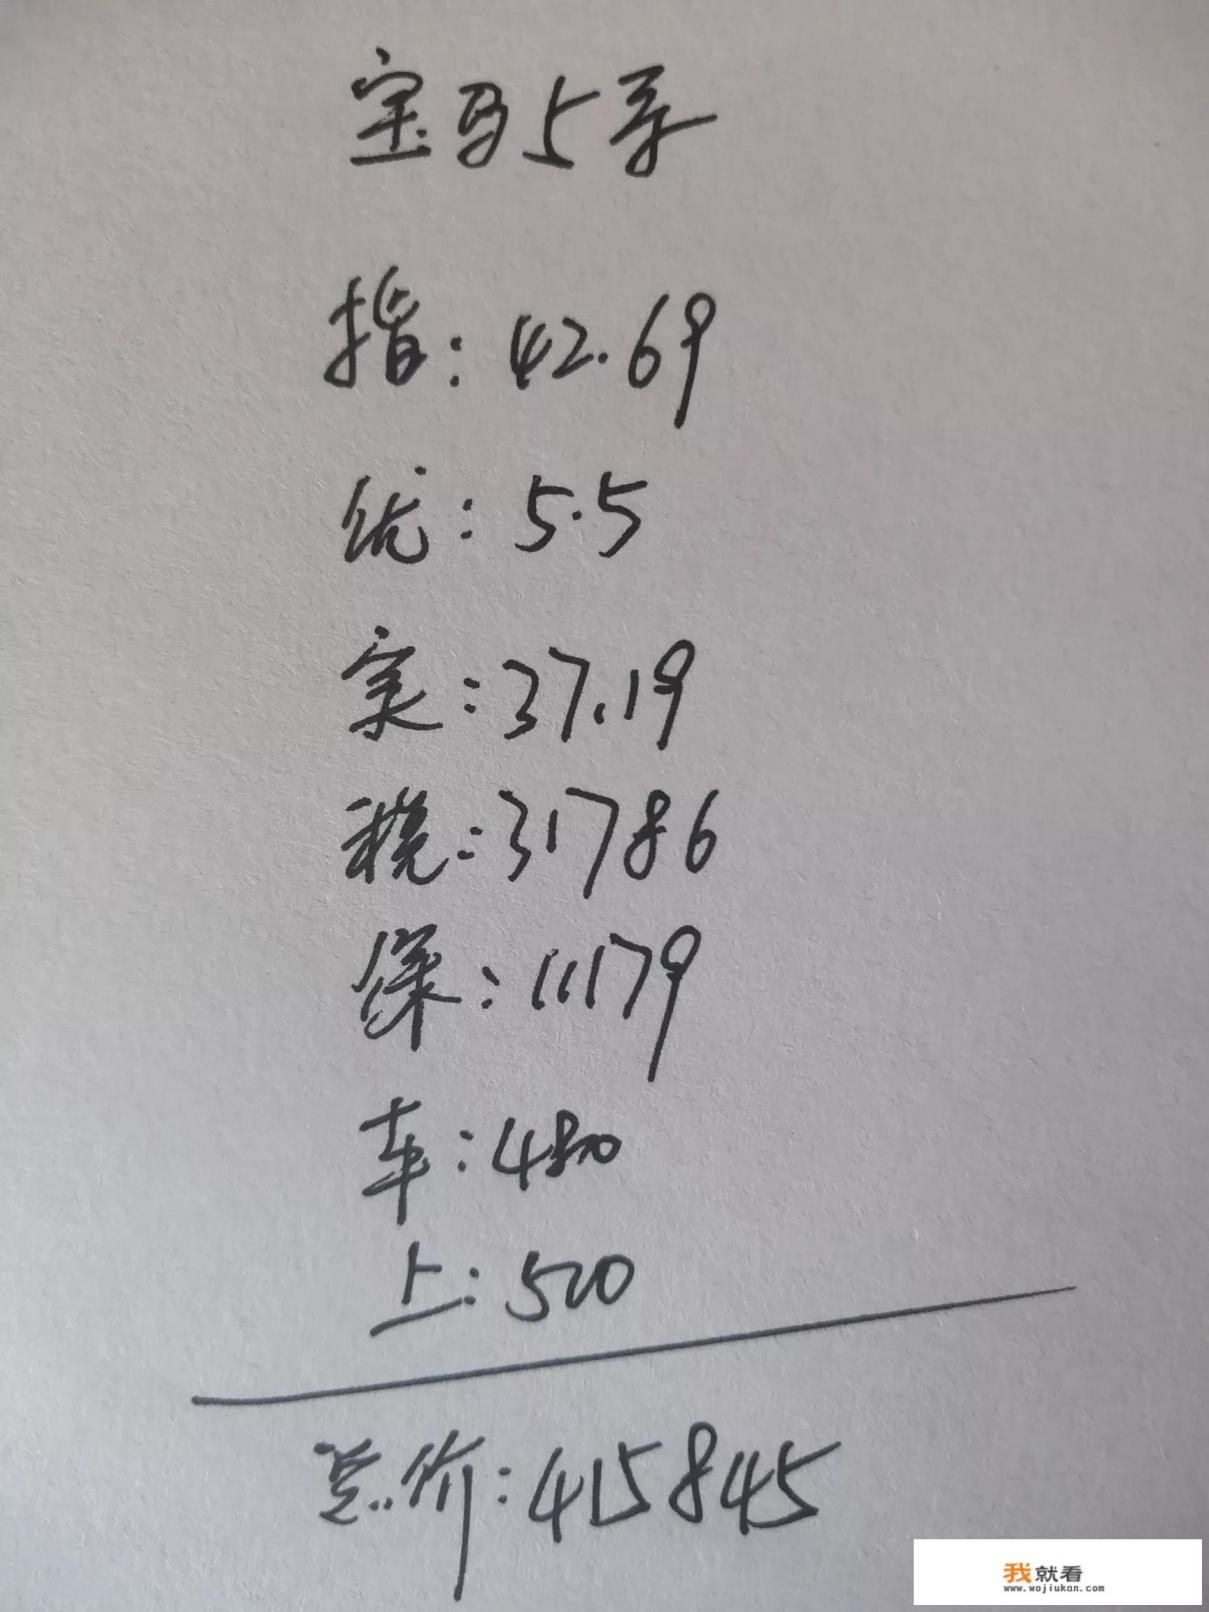 宝马5系
指：42.69
优：5.5
实：37.19
税：31786
保：11179
车：480
上：500
总价：415845
我就看
www.wojiukan.com